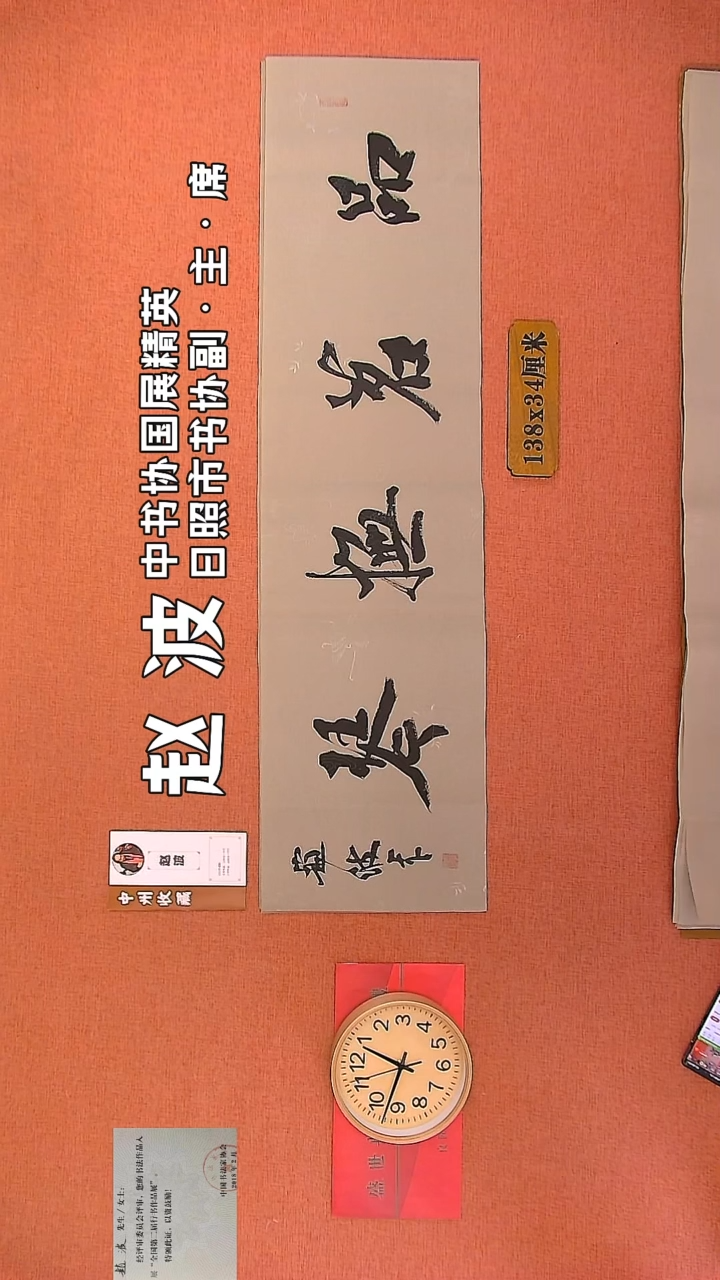 赵波 中书协国展精英
日照市书协副·主·席
中州收藏
赵波
品茗撫琴
138x34厘米
12
1
2
3
4
5
6
7
8
9
10
11
盛世
先生/女士:
经评审委员会评审,您的书法作品入
展“全国第二届行书作品展”。
特颁此证,以资鼓励!
中国书法家协会